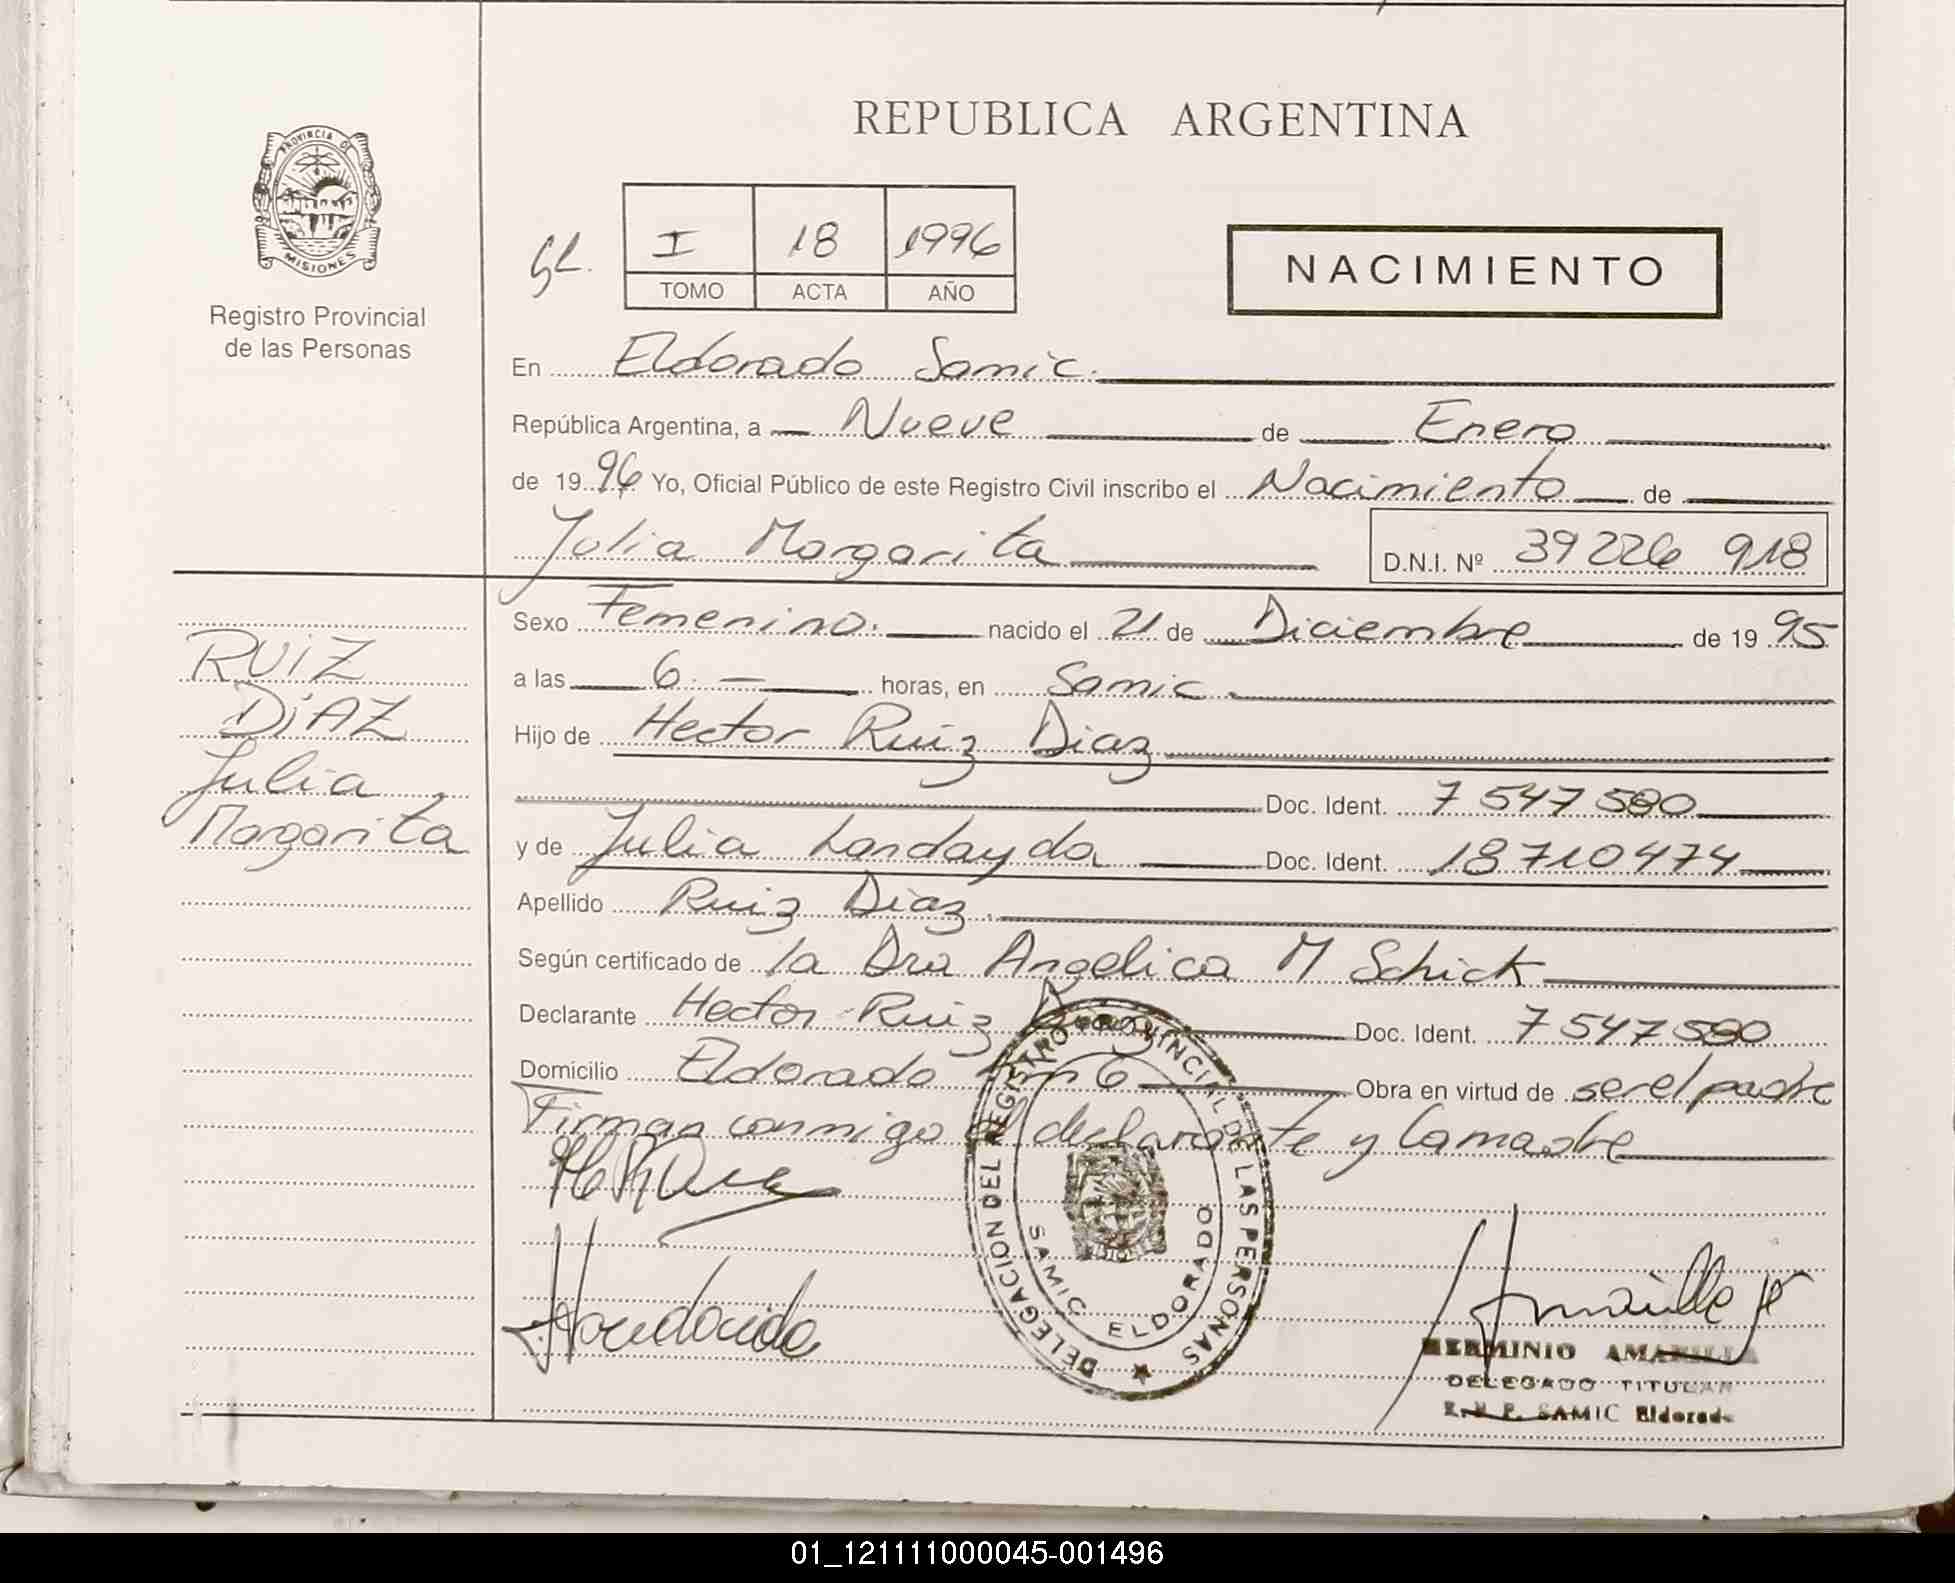 REPUBLICA ARGENTINA
PROVINCIA DE
MISIONES
Registro Provincial
de las Personas
I 18 1996
TOMO ACTA AÑO
NACIMIENTO
En Eldorado Samic.
República Argentina, a Nueve de Enero
de 1996 Yo, Oficial Público de este Registro Civil inscribo el Nacimiento de
Julia Margarita D.N.I. Nº 39 226 918
Sexo Femenino. nacido el 21 de Diciembre de 1995
a las 6.- horas, en Samic.
Hijo de Hector Ruiz Diaz
Doc. Ident. 7 547 580
y de Julia Landayda Doc. Ident. 18 710 474
Apellido Ruiz Diaz.
Según certificado de la Dra Angelica M Schick
Declarante Hector Ruiz Diaz Doc. Ident. 7 547 580
Domicilio Eldorado Km 6 Obra en virtud de ser el padre
Firman conmigo el declarante y la madre
RUIZ
DIAZ
Julia
Margarita
DELEGACION DEL REGISTRO PROVINCIAL DE LAS PERSONAS
SAMIC ELDORADO
HERMINIO AMARILLA
DELEGADO TITULAR
R.N.P. SAMIC Eldorado
01_121111000045-001496